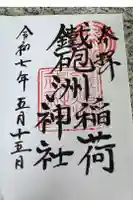 奉拝
鐵砲洲稲荷
神社
令和七年五月十五日